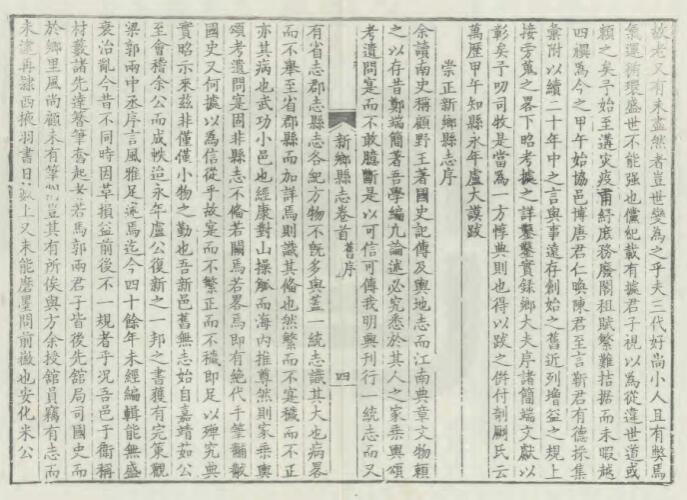 故老又有未盡然者豈世變為之乎夫三代好尚小人且有獘焉
氣運循環盛世不能强也儻紀載有據君子視以為從違世道或
賴之矣子始至溝灾疫甫紓庶務廢閣租賦繁難拮据而未暇越
四禩為今之甲午始協邑博唐君仁喚陳君至言靳君有德採集
彙附以續二十年中之言與事遠存創始之舊近列增益之規上
接旁蒐之畧下昭考據之詳鑿鑿實錄鄉大夫序諸簡端文獻以
彰矣子叨司牧是當為一方惇典則也得以跋之併付剞劂氏云
萬歷甲午知縣永年盧大謨跋
崇正新鄉縣志序
余讀南史稱顧野王著國史記傳及輿地志而江南典章文物賴
之以存昔鄭端簡著吾學編凡論述必究悉於其人之家乘輿頌
考遺問寔而不敢臆斷是以可信可傳我明興刊行一統志而又
新鄉縣志卷首 舊序 四
有省志郡志縣志各紀方物不旣多與蓋一統志識其大也病畧
而不舉至省郡縣而加詳焉則識其偹也然繁而不寔穢而不正
亦其病也武功小邑也經康對山操觚而海內推尊然則家乘輿
頌考遺問寔固非縣志不偹若闕焉若畧焉即有絶代手筆黼黻
國史又何據以為信從乎故寔而不繁正而不穢即足以殫究典
實昭示來兹非僅僅小物之勤也吾新邑舊無志始自嘉靖茹公
至會稽余公而成帙迨永年盧公復新之一邦之書獲有完策觀
梁郭兩中丞序言風雅足遠焉迄今四十餘年未經編輯能無盛
衰治亂今昔不同時因革損益前後不一規者乎况吾邑子衿稱
材藪諸先達簪筆奮起如若馬郭兩君子皆後先館局司國史而
於鄉里風尚顧未有筆 豈其有所俟與方余授館員竊有志而
未逮再隸西掖羽書日 數上又未能磨墨問前徽也安化米公